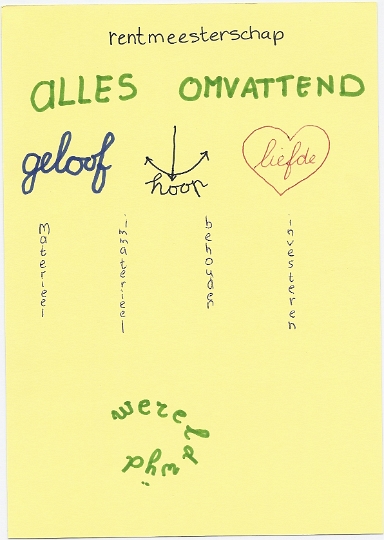 rentmeesterschap
ALLES OMVATTEND
geloof hoop liefde
Materieel
immaterieel
behouden
investeren
wereldwijd